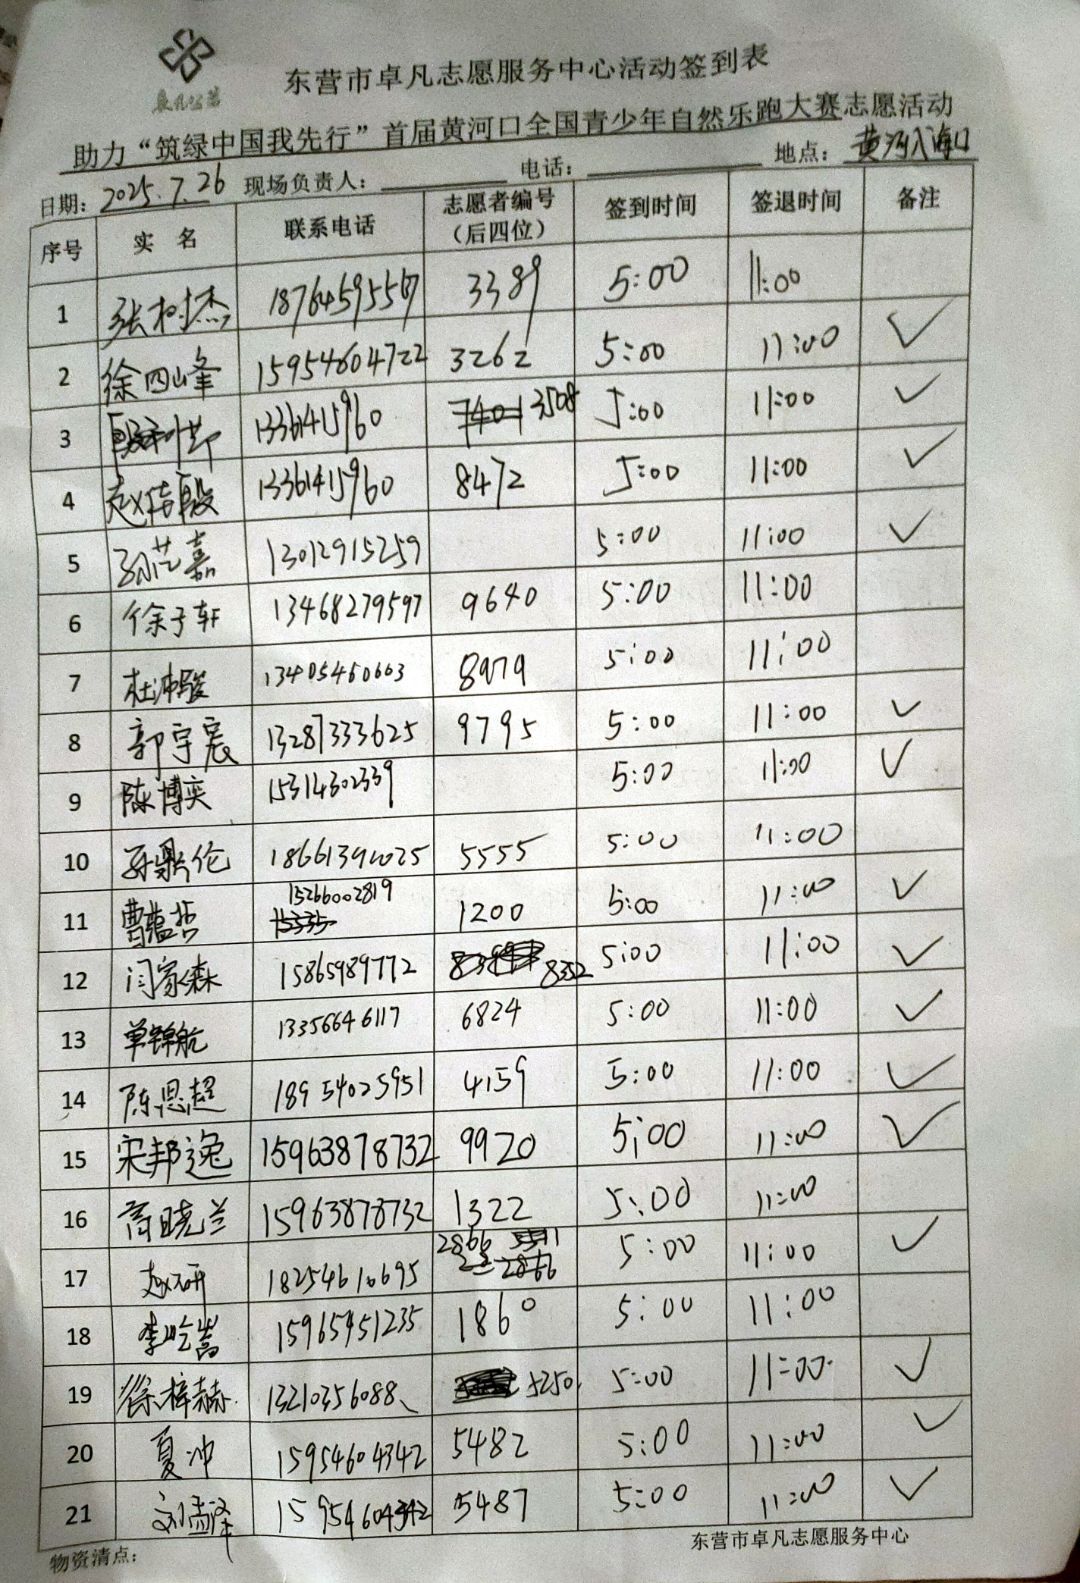 卓凡公益
东营市卓凡志愿服务中心活动签到表
助力“筑绿中国我先行”首届黄河口全国青少年自然乐跑大赛志愿活动
日期：2025.7.26 现场负责人： 电话： 地点：黄河入海口
序号 实 名 联系电话 志愿者编号（后四位） 签到时间 签退时间 备注
1 张树杰 18764595567 3389 5:00 11:00
2 徐四峰 15954604722 3262 5:00 11:00 ✓
3 13361415960 7401 3508 5:00 11:00 ✓
4 13361415960 8472 5:00 11:00 ✓
5 孙艺嘉 13012915259 5:00 11:00 ✓
6 徐子轩 13468279597 9640 5:00 11:00
7 杜沛骏 13405460603 8979 5:00 11:00
8 郭宇宸 13287333625 9795 5:00 11:00 ✓
9 陈博奕 15314302339 5:00 11:00 ✓
10 孙鼎伦 18661391025 5555 5:00 11:00
11 曹蕴哲 15266002819 1200 5:00 11:00 ✓
12 闫家森 15865989772 8352 5:00 11:00 ✓
13 单锦航 13356646117 6824 5:00 11:00 ✓
14 陈恩超 18954025951 4159 5:00 11:00 ✓
15 宋邦逸 15963878732 9920 5:00 11:00 ✓
16 高晓兰 15963878732 1322 5:00 11:00
17 赵研 18254610695 2866 2866 5:00 11:00 ✓
18 李晗嵩 15965451235 1860 5:00 11:00
19 徐梓赫 13210356088 5250 5:00 11:00 ✓
20 夏冲 15954604342 5482 5:00 11:00 ✓
21 刘孟泽 15954604342 5487 5:00 11:00 ✓
物资清点： 东营市卓凡志愿服务中心